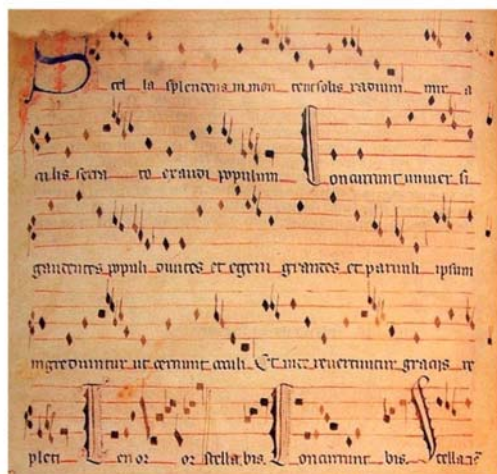 Stel la splendens in mon te ut solis radium mir a
culis serra to exaudi populum Concurrunt univer si
gaudentes populi divites et egeni grandes et parvuli ipsum
ingrediuntur ut cernunt occuli Et inde revertuntur graciis re
pleti Tenor or stella bis. Concurrunt bis. Stella